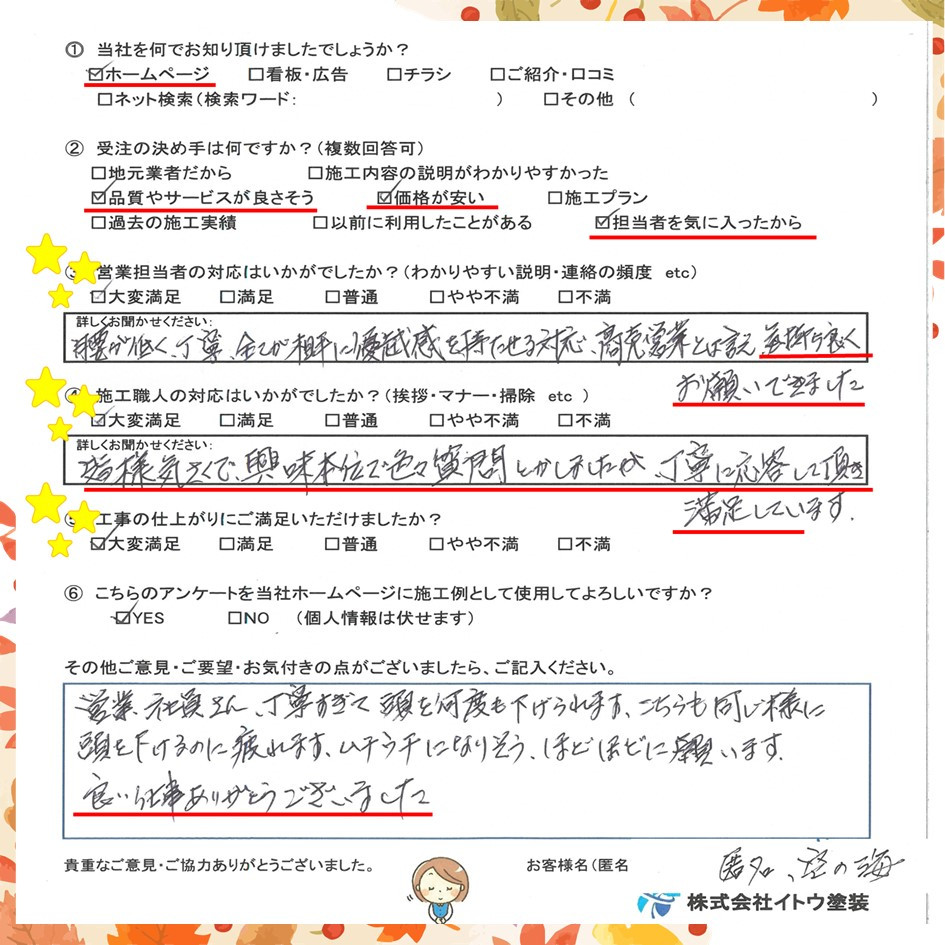 ① 当社を何でお知り頂けましたでしょうか？
☑ホームページ □看板・広告 □チラシ □ご紹介・口コミ
□ネット検索（検索ワード: ） □その他 （ ）
② 受注の決め手は何ですか？（複数回答可）
□地元業者だから □施工内容の説明がわかりやすかった
☑品質やサービスが良さそう ☑価格が安い □施工プラン
□過去の施工実績 □以前に利用したことがある ☑担当者を気に入ったから
営業担当者の対応はいかがでしたか？（わかりやすい説明・連絡の頻度 etc）
☑大変満足 □満足 □普通 □やや不満 □不満
詳しくお聞かせください:
腰が低く、丁寧、全てが相手に優越感を持たせる対応、営業とは言え、気持ち良く
お願いできました
施工職人の対応はいかがでしたか？（挨拶・マナー・掃除 etc ）
☑大変満足 □満足 □普通 □やや不満 □不満
詳しくお聞かせください:
皆様気さくで、興味本位で色々質問とかしましたが、丁寧に応答して頂き
満足しています.
工事の仕上がりにご満足いただけましたか？
☑大変満足 □満足 □普通 □やや不満 □不満
⑥ こちらのアンケートを当社ホームページに施工例として使用してよろしいですか？
☑YES □NO （個人情報は伏せます）
その他ご意見・ご要望・お気付きの点がございましたら、ご記入ください。
営業社員さん、丁寧すぎて頭を何度も下げられます、こちらも同じ様に
頭を下げるのに疲れます、ムチウチになりそう、ほどほどに願います.
良い仕事ありがとうございました
貴重なご意見・ご協力ありがとうございました。 お客様名（匿名 匿名、空の海
株式会社イトウ塗装